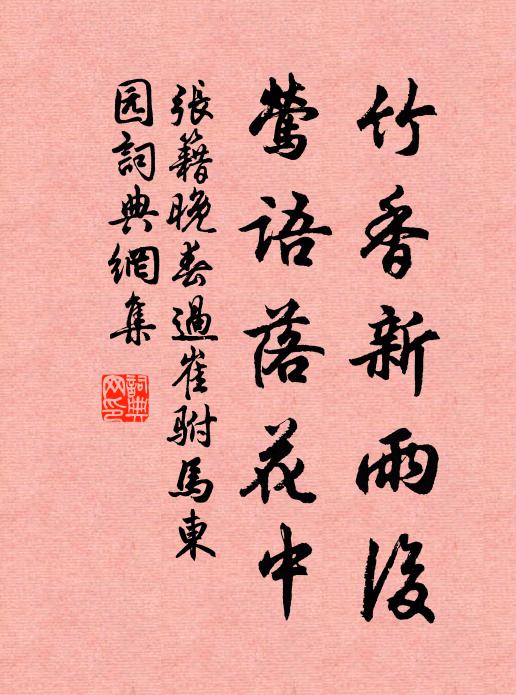 竹香新雨後
鶯語落花中
張籍晚春過崔駙馬東
园詞典網集
詞典網印